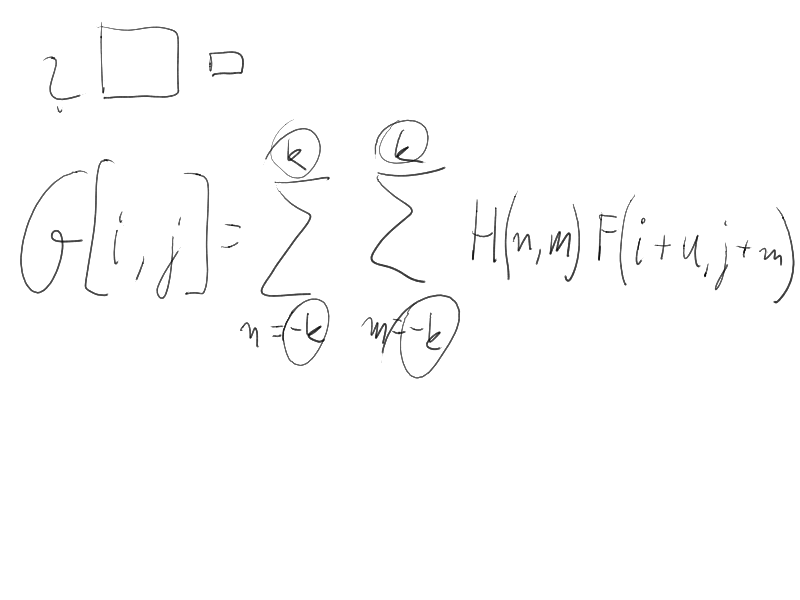 ?
G[i,j] = \sum_{n=-k}^{k} \sum_{m=-k}^{k} H(n,m) F(i+u,j+m)